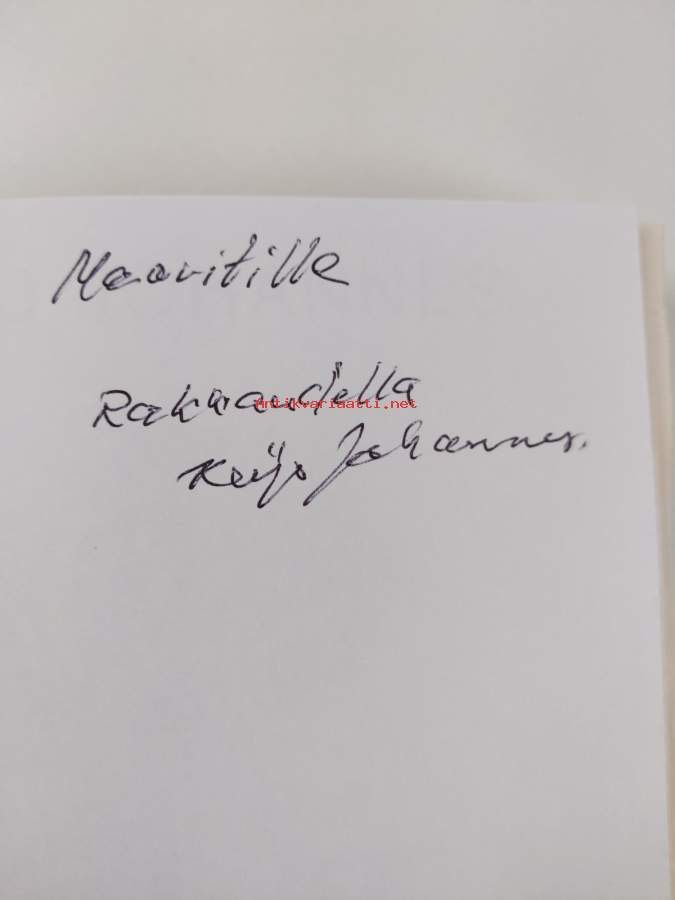 Maaritille
Rakkaudella
Antikvariaatti.net
Keijo Johannes.